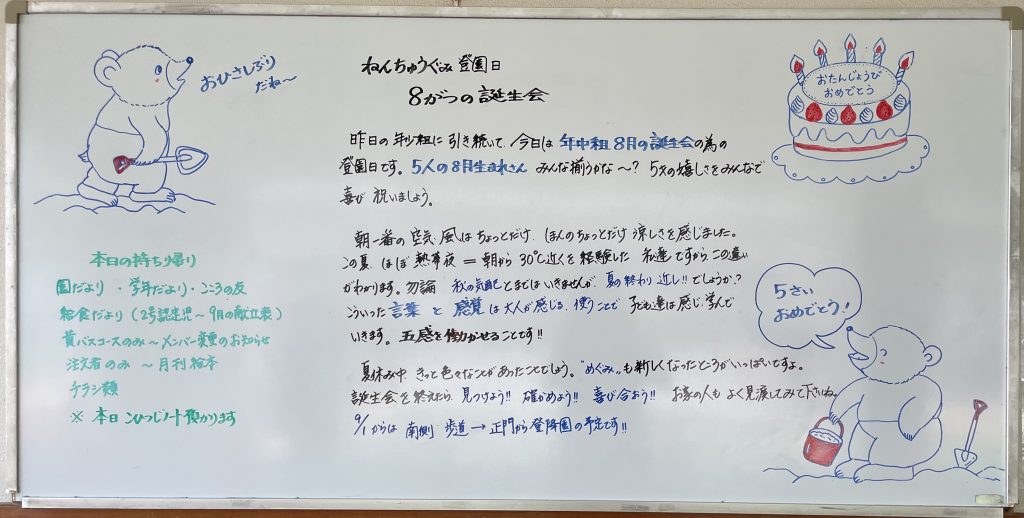 おひさしぶり
だね〜
ねんちゅうぐみ 登園日
8がつの誕生会
おたんじょうび
おめでとう
昨日の年少組に引き続いて、今日は 年中組 8月の誕生会の為の
登園日です。5人の8月生まれさん みんな揃うかな〜? 5才の嬉しさをみんなで
喜び 祝いましょう。
朝一番の空気、風はちょっとだけ、ほんのちょっとだけ 涼しさを感じました。
この夏、ほぼ 熱帯夜 = 朝から30℃近くを経験した 私達ですから、この違い
がわかります。勿論 秋の気配とまではいきませんが、夏の終わり 近し!! でしょうか?
こういった 言葉 と 感覚 は大人が感じる、使うことで 子ども達は感じ、学んで
いきます。五感を働かせることです!!
夏休み中 きっと色々なことがあったことでしょう。"めぐみ"も新しくなったところがいっぱいですよ。
誕生会を終えたら 見つけよう!! 確かめよう!! 喜び合おう!! お家の人も よく見渡してみて下さいね。
9/1からは 南側 歩道→正門から登降園の予定です!!
本日の持ち帰り
園だより ・学年だより・こころの友
給食だより(2号認定児〜9月の献立表)
黄バスコースのみ〜メンバー変更のお知らせ
注文者のみ 〜月刊絵本
チラシ類
※ 本日 こひつじノート預かります
5さい
おめでとう!